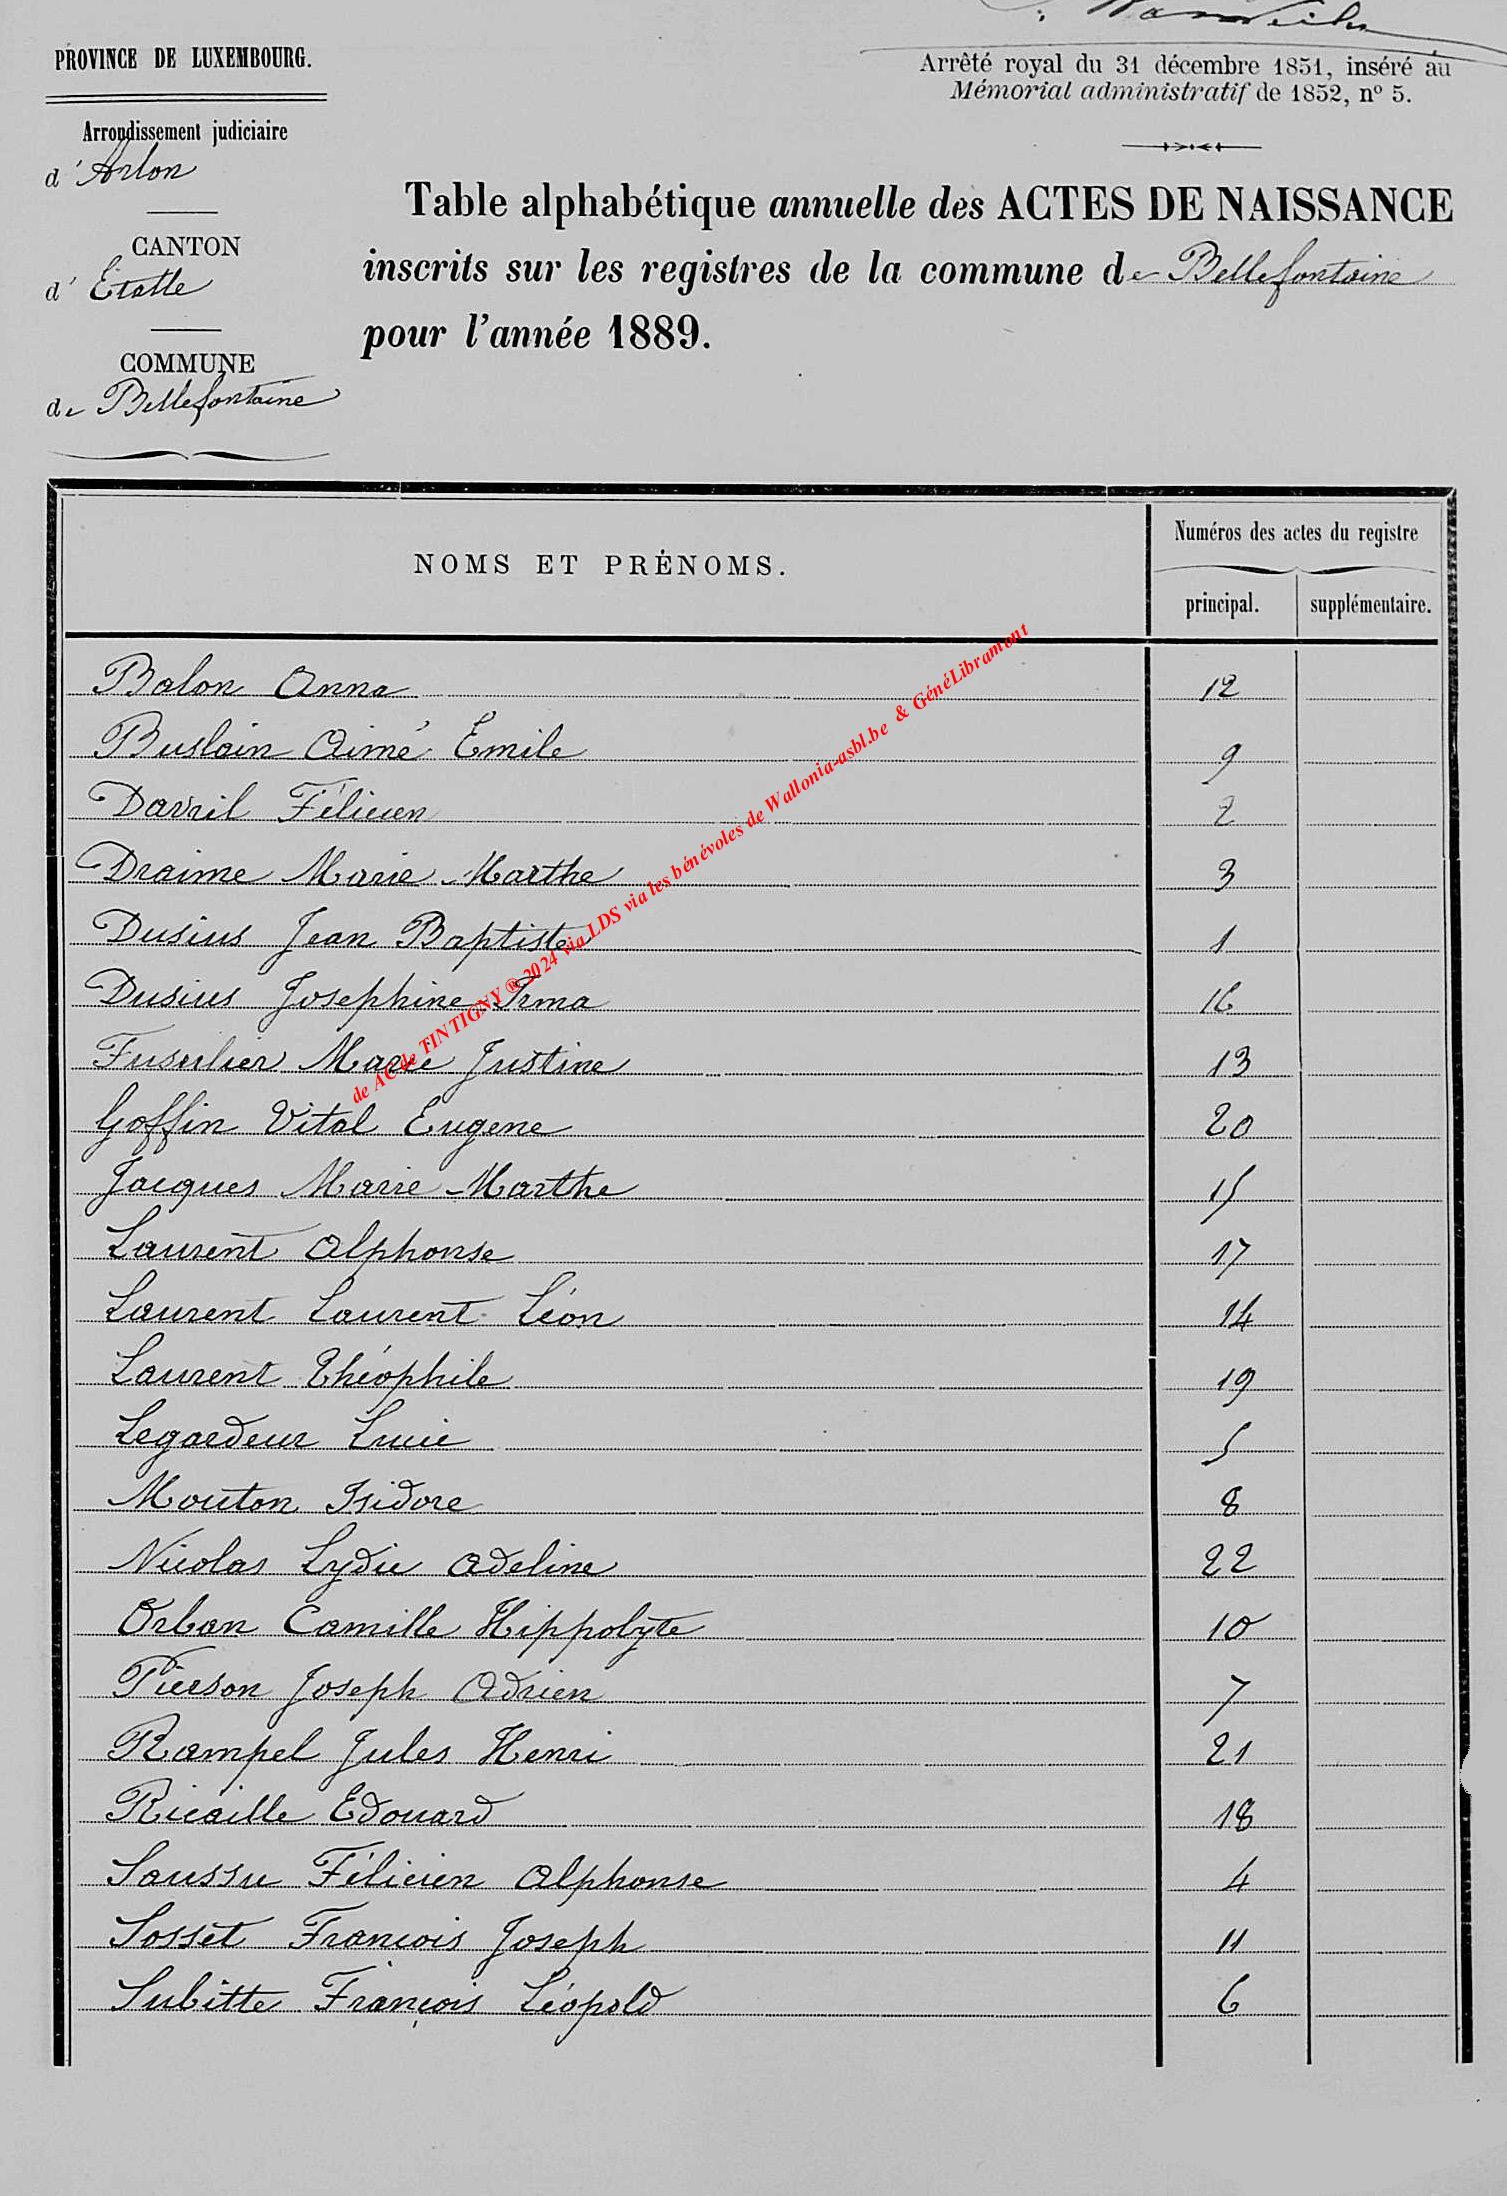 PROVINCE DE LUXEMBOURG.
Arrondissement judiciaire
d'Arlon
CANTON
d'Etalle
COMMUNE
de Bellefontaine
Arrêté royal du 31 décembre 1851, inséré au
Mémorial administratif de 1852, nº 5.
Table alphabétique annuelle des ACTES DE NAISSANCE
inscrits sur les registres de la commune de Bellefontaine
pour l'année 1889.
NOMS ET PRÉNOMS.
Numéros des actes du registre
principal. supplémentaire.
Balon Anna 12
Buslain Aimé Emile 9
Davril Félicien 2
Draime Marie Marthe 3
Dusius Jean Baptiste 1
Dusius Josephine Irma 16
Fusulier Marie Justine 13
Goffin Vital Eugene 20
Jacques Marie Marthe 15
Laurent Alphonse 17
Laurent Laurent Léon 14
Laurent Théophile 19
Legardeur Lucie 5
Mouton Isidore 8
Nicolas Lydie Adeline 22
Orban Camille Hippolyte 10
Pierson Joseph Adrien 7
Rampel Jules Henri 21
Ricaille Edouard 18
Saussu Félicien Alphonse 4
Sosset Francois Joseph 11
Subitte François Léopold 6
de AC de TINTIGNY ® 2024 via LDS via les bénévoles de Wallonia-asbl.be & GénéLibramont